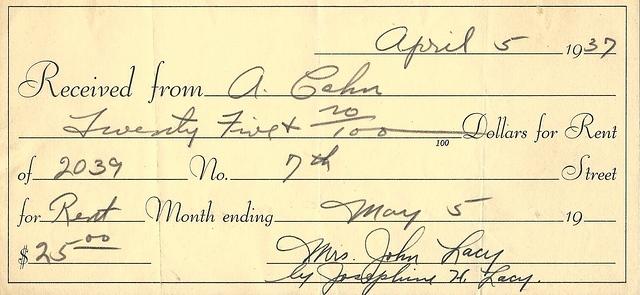 April 5 1937
Received from A. Cahn
Twenty Five & no/100 Dollars for Rent
100
of 2039 No. 7th Street
for Rent Month ending May 5 19
$25.00 Mrs. John Lacy
by Josephine H. Lacy.